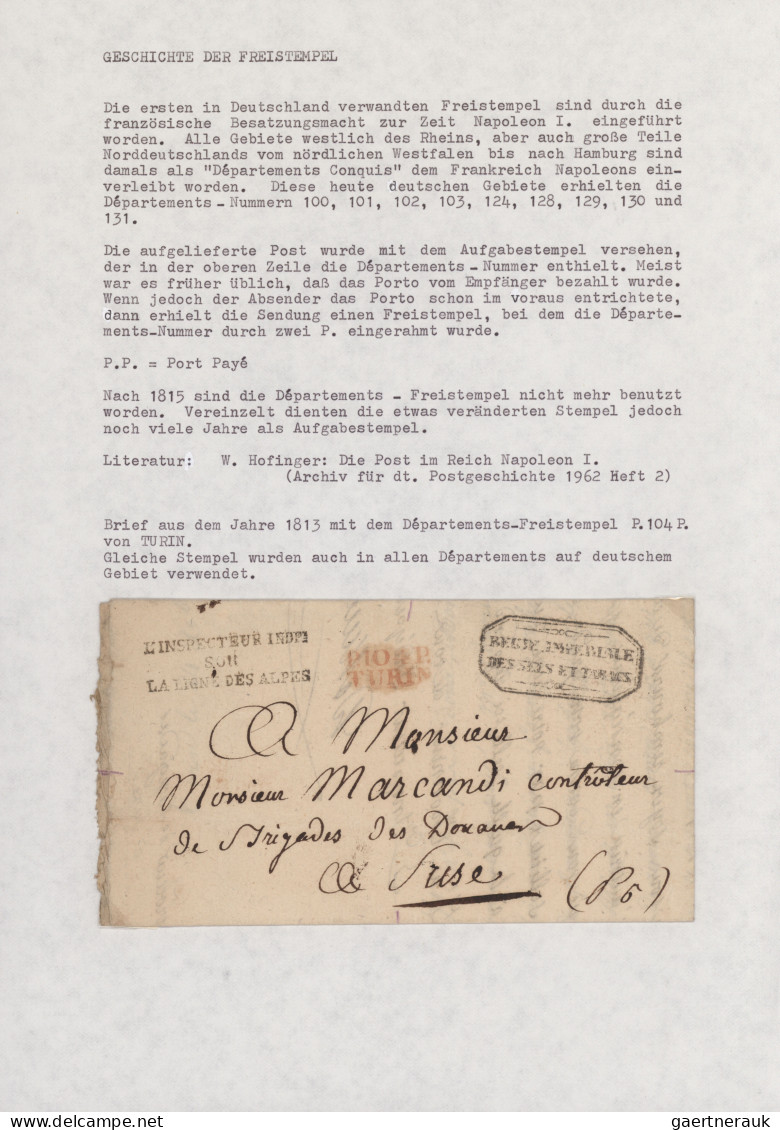 GESCHICHTE DER FREISTEMPEL
Die ersten in Deutschland verwandten Freistempel sind durch die
französische Besatzungsmacht zur Zeit Napoleon I. eingeführt
worden. Alle Gebiete westlich des Rheins, aber auch große Teile
Norddeutschlands vom nördlichen Westfalen bis nach Hamburg sind
damals als "Départements Conquis" dem Frankreich Napoleons ein-
verleibt worden. Diese heute deutschen Gebiete erhielten die
Départements - Nummern 100, 101, 102, 103, 124, 128, 129, 130 und
131.
Die aufgelieferte Post wurde mit dem Aufgabestempel versehen,
der in der oberen Zeile die Départements - Nummer enthielt. Meist
war es früher üblich, daß das Porto vom Empfänger bezahlt wurde.
Wenn jedoch der Absender das Porto schon im voraus entrichtete,
dann erhielt die Sendung einen Freistempel, bei dem die Départe-
ments-Nummer durch zwei P. eingerahmt wurde.
P.P. = Port Payé
Nach 1815 sind die Départements - Freistempel nicht mehr benutzt
worden. Vereinzelt dienten die etwas veränderten Stempel jedoch
noch viele Jahre als Aufgabestempel.
Literatur: W. Hofinger: Die Post im Reich Napoleon I.
(Archiv für dt. Postgeschichte 1962 Heft 2)
Brief aus dem Jahre 1813 mit dem Départements-Freistempel P.104P.
von TURIN.
Gleiche Stempel wurden auch in allen Départements auf deutschem
Gebiet verwendet.
L'INSPECTEUR
SUR
LA LIGNE DES ALPES
P.104P.
TURIN
REGIE IMPERIALE
DES SELS ET TABACS
A Monsieur
Monsieur Marcandi controleur
de Brigades des Douanes
a Suse
(P 6)
delcampe.net
gaertnerauk